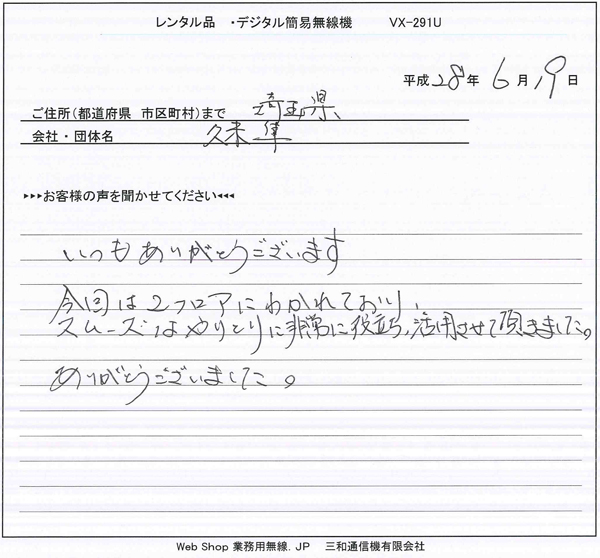 レンタル品 ・デジタル簡易無線機 VX-291U
平成28年6月19日
ご住所(都道府県 市区町村)まで 埼玉県
会社・団体名 久末
▸▸▸お客様の声を聞かせてください◂◂◂
いつもありがとうございます
今回は2フロアにわかれており、
スムーズなやりとりに非常に役立ち、活用させて頂きました。
ありがとうございました。
Web Shop 業務用無線.JP 三和通信機有限会社